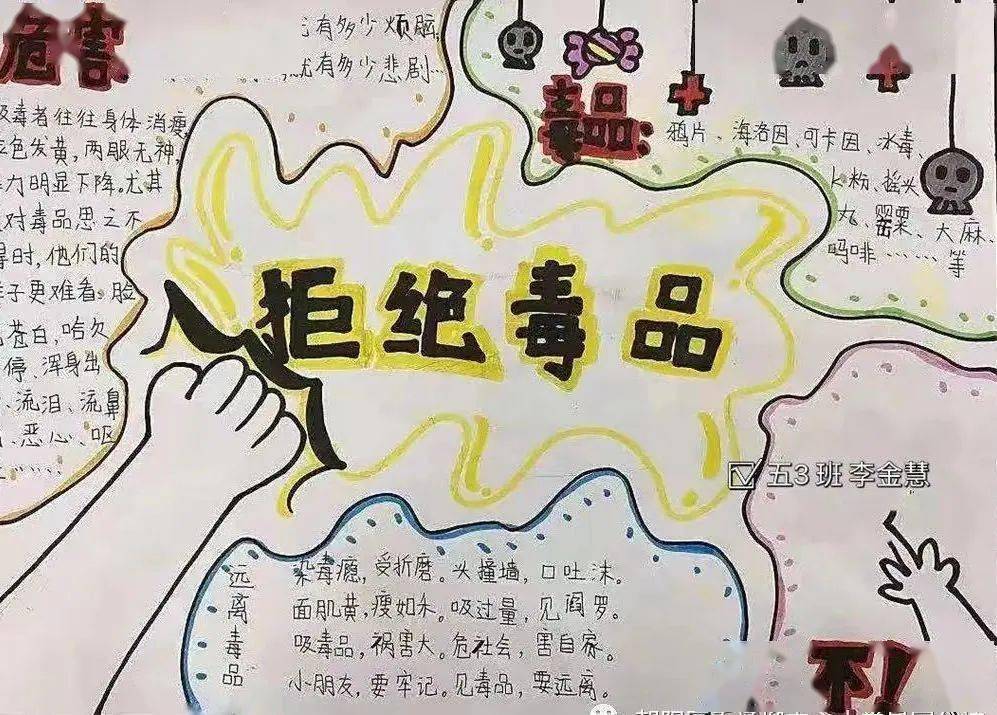 危害
有多少烦恼,
就有多少悲剧…
吸毒者往往身体消瘦,
色发黄,两眼无神,
力明显下降。尤其
对毒品思之不
得时,他们的
样子更难看。脸
苍白,哈欠
停、浑身出
、流泪、流鼻
、恶心、呕
……
毒品:
鸦片、海洛因、可卡因、冰毒、
K粉、摇头
丸、罂粟、大麻、
吗啡……等
拒绝毒品
五3班 李金慧
远离毒品
染毒瘾,受折磨。头撞墙,口吐沫。
面肌黄,瘦如禾。吸过量,见阎罗。
吸毒品,祸害大。危社会,害自家。
小朋友,要牢记。见毒品,要远离。
不!